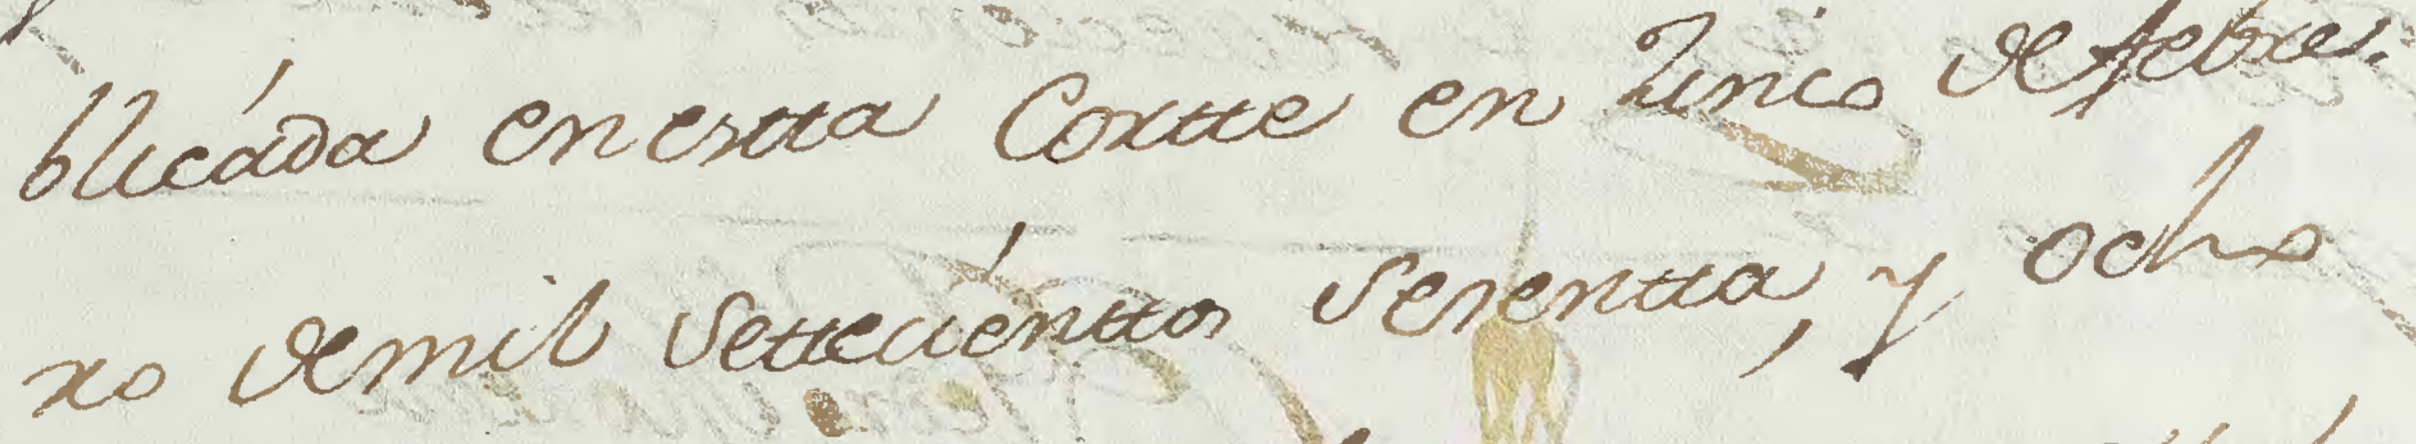 blicáda en estta Cortte en Zinco de febre-
ro de mil Settecienttos Sesentta, y ocho